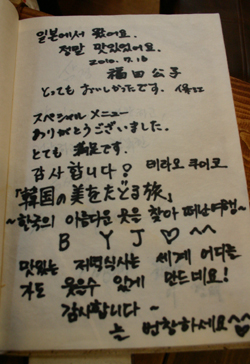 일본에서 왔어요.
정말 맛있었어요.
2010.7.18
福田公子
とってもおいしかったです.
スペシャルメニュー
ありがとうございました。
とても 満足です.
감사 합니다! 테라오 쿠미코
「韓国の美をたどる旅」
~한국의 아름다운 곳을 찾아 떠난여행~
B Y J ♡ ^^
맛있는 저녁식사는 세계 어디든
가도 웃을수 있게 만드네요!
감사합니다~
늘 번창하세요^^